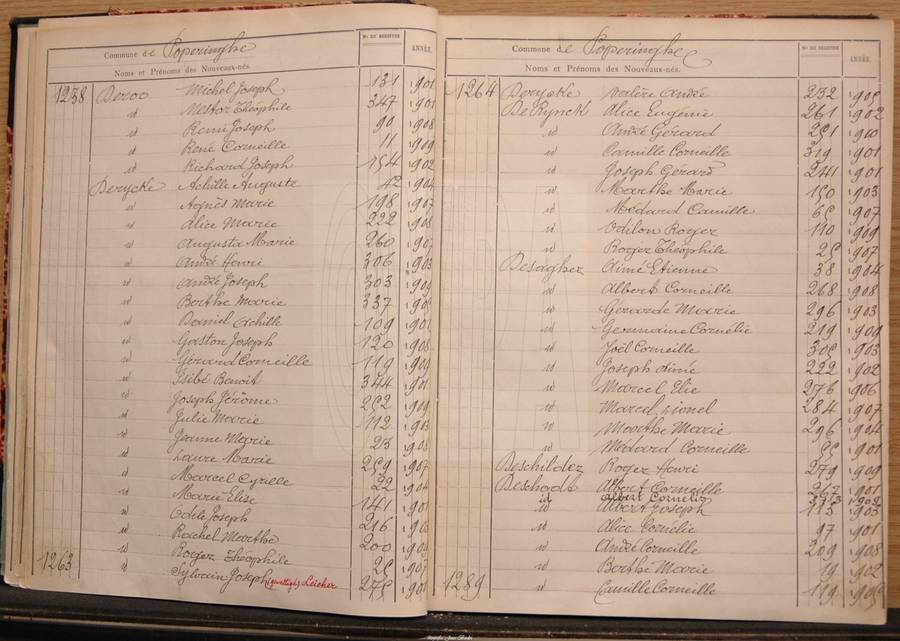 Commune de Poperinghe
Nos DE REGISTRE
ANNÉE.
Noms et Prénoms des Nouveaux-nés.
1238 Deroo Michel Joseph 131 1901
id Nestor Théophile 347 1901
id Remi Joseph 90 1908
id René Corneille 11 1909
id Richard Joseph 154 1902
Derycke Achille Auguste 42 1904
id Agnès Marie 198 1907
id Alice Marie 222 1908
id Augusta Marie 260 1907
id André Henri 306 1903
id André Joseph 303
id Berthe Marie 337
id Daniel Achille 109 1901
id Gaston Joseph 120 1908
id Gérard Corneille 119
id Benoit 344 1901
id Joseph Jérôme 252 1909
id Julie Marie 112 1903
id Jeanne Marie 23 1908
id Laure Marie 259 1907
id Marcel Cyrille 22 1904
id Marie Elise 141 1901
id Odele Joseph 216
id Rachel Marthe 200
id Roger Théophile 25 1907
1263 id Sylvain Joseph Leicher 275 1901
Commune de Poperinghe
Nos DE REGISTRE
ANNÉE.
Noms et Prénoms des Nouveaux-nés.
1264 Derycke Valère André 232
De Rynck Alice Eugénie 261 1902
id André Gerard 251 1910
id Camille Corneille 319 1901
id Joseph Gerard 241 1901
id Marthe Marie 150 1903
id Médard Camille 65 1907
id Odilon Roger 110 1909
id Roger Théophile 25 1907
Desagher Aimé Etienne 38 1904
id Albert Corneille 268 1908
id Gérarde Marie 296 1903
id Germaine Cornélie 219
id Joël Corneille 305 1903
id Joseph Aimé 222 1902
id Marcel Elie 276 1906
id Marcel Lionel 284 1907
id Marthe Marie 296 1904
id Médard Corneille 55 1901
Deschilder Roger Henri 279 1909
Deschodt Albert Corneille 267 1901
id Albert Cornelis
id Albert Joseph 113 1903
id Alice Cornélie 97 1901
id André Corneille 209 1908
id Berthe Marie 19 1902
1289 id Camille Corneille 119